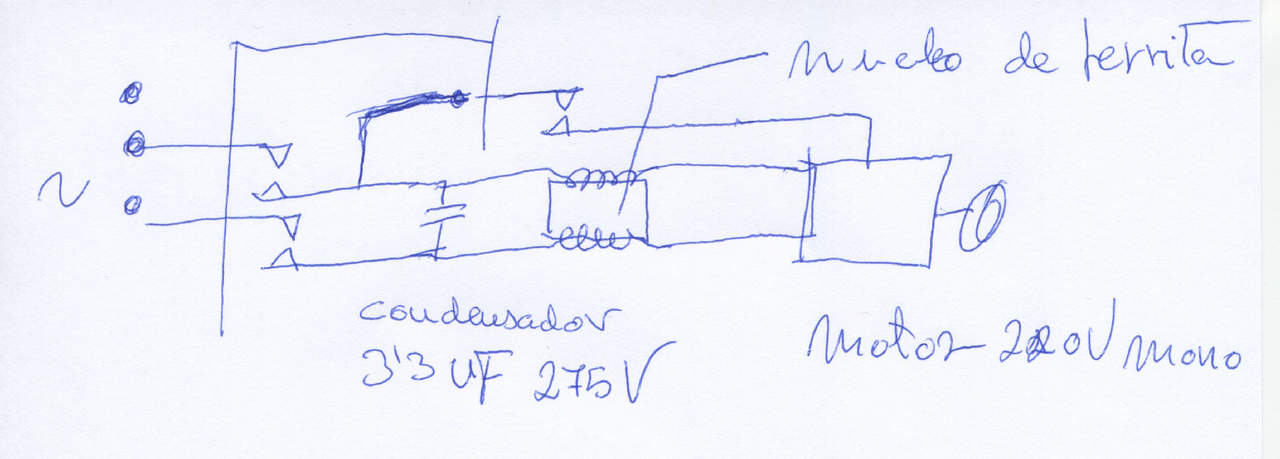 Nucleo de ferrita
condensador
3'3 UF 275V
Motor 220V mono